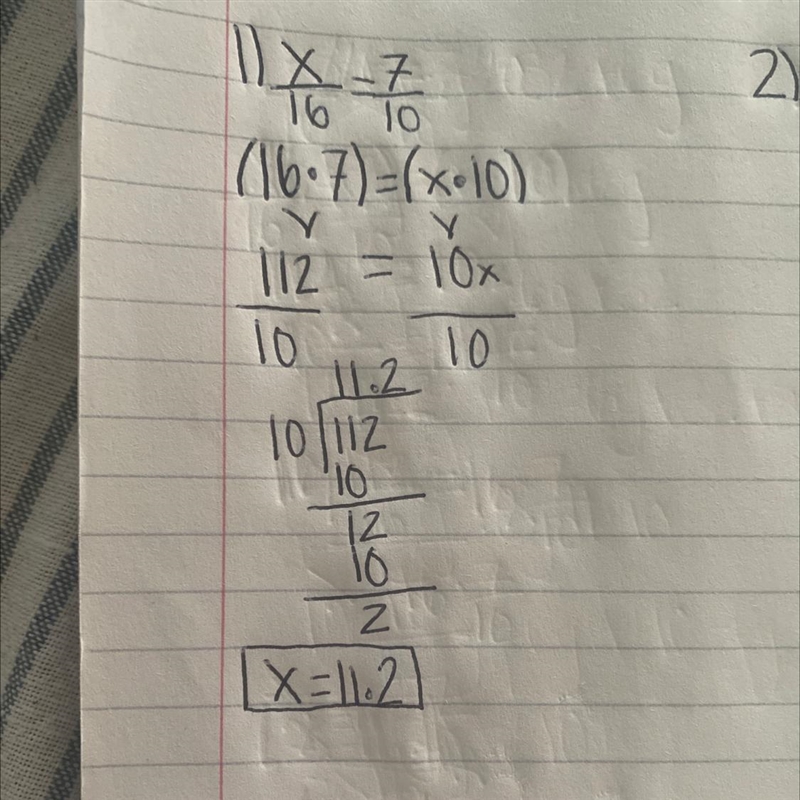 1) x/16 = 7/10
2)
(16•7)=(x•10)
112/10 = 10x/10
11.2
10 112
10
12
10
2
x=11.2